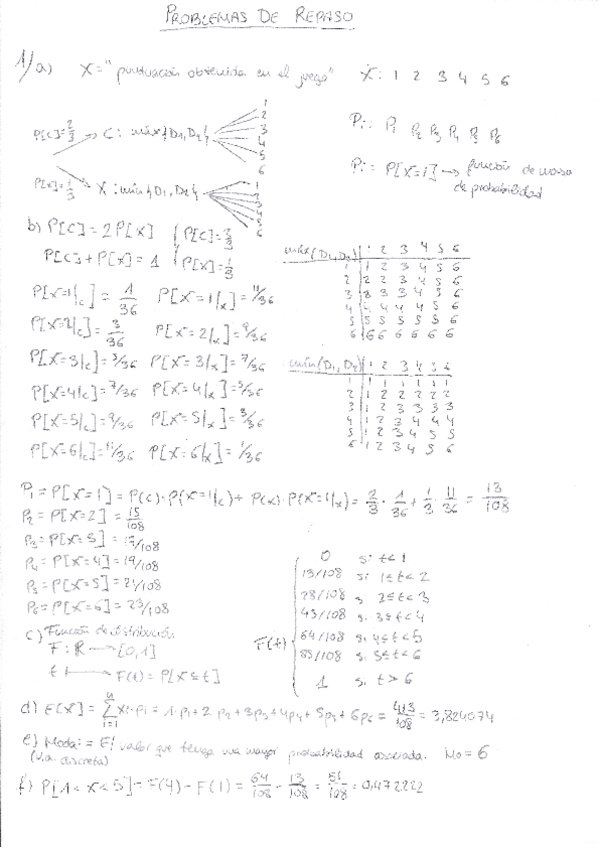 PROBLEMAS DE REPASO
1/ a) X = "puntuación obtenida en el juego" X: 1 2 3 4 5 6
P[C]=2/3 C: máx{D1,D2} 1 2 3 4 5 6
Pi: P1 P2 P3 P4 P5 P6
P[X]=1/3 X: mín{D1,D2} 1 2 3 4 5 6
Pi = P[X=i] → función de masa de probabilidad
b) P[C]=2P[X] P[C]=2/3
P[C]+P[X]=1 P[X]=1/3
máx(D1,D2) 1 2 3 4 5 6
1 1 2 3 4 5 6
2 2 2 3 4 5 6
3 3 3 3 4 5 6
4 4 4 4 4 5 6
5 5 5 5 5 5 6
6 6 6 6 6 6 6
P[X=1/C] = 1/36 P[X=1/X] = 11/36
P[X=2/C] = 3/36 P[X=2/X] = 9/36
P[X=3/C] = 5/36 P[X=3/X] = 7/36
P[X=4/C] = 7/36 P[X=4/X] = 5/36
P[X=5/C] = 9/36 P[X=5/X] = 3/36
P[X=6/C] = 11/36 P[X=6/X] = 1/36
mín(D1,D2) 1 2 3 4 5 6
1 1 1 1 1 1 1
2 1 2 2 2 2 2
3 1 2 3 3 3 3
4 1 2 3 4 4 4
5 1 2 3 4 5 5
6 1 2 3 4 5 6
P1 = P[X=1] = P(C)·P(X=1/C) + P(X)·P(X=1/X) = 2/3 · 1/36 + 1/3 · 11/36 = 13/108
P2 = P[X=2] = 15/108
P3 = P[X=3] = 17/108
P4 = P[X=4] = 19/108
P5 = P[X=5] = 21/108
P6 = P[X=6] = 23/108
c) Función de distribución
F: R → [0,1]
t → F(t) = P[X≤t]
F(t)
0 si t<1
13/108 si 1≤t<2
28/108 si 2≤t<3
45/108 si 3≤t<4
64/108 si 4≤t<5
85/108 si 5≤t<6
1 si t>6
d) E[X] = Σ xi·pi = 1·p1+2p2+3p3+4p4+5p5+6p6 = 413/108 = 3,824074
e) Moda: = El valor que tenga una mayor probabilidad asociada. Mo = 6
(v.a. discreta)
f) P[1<X<5] = F(4) - F(1) = 64/108 - 13/108 = 51/108 = 0,472222